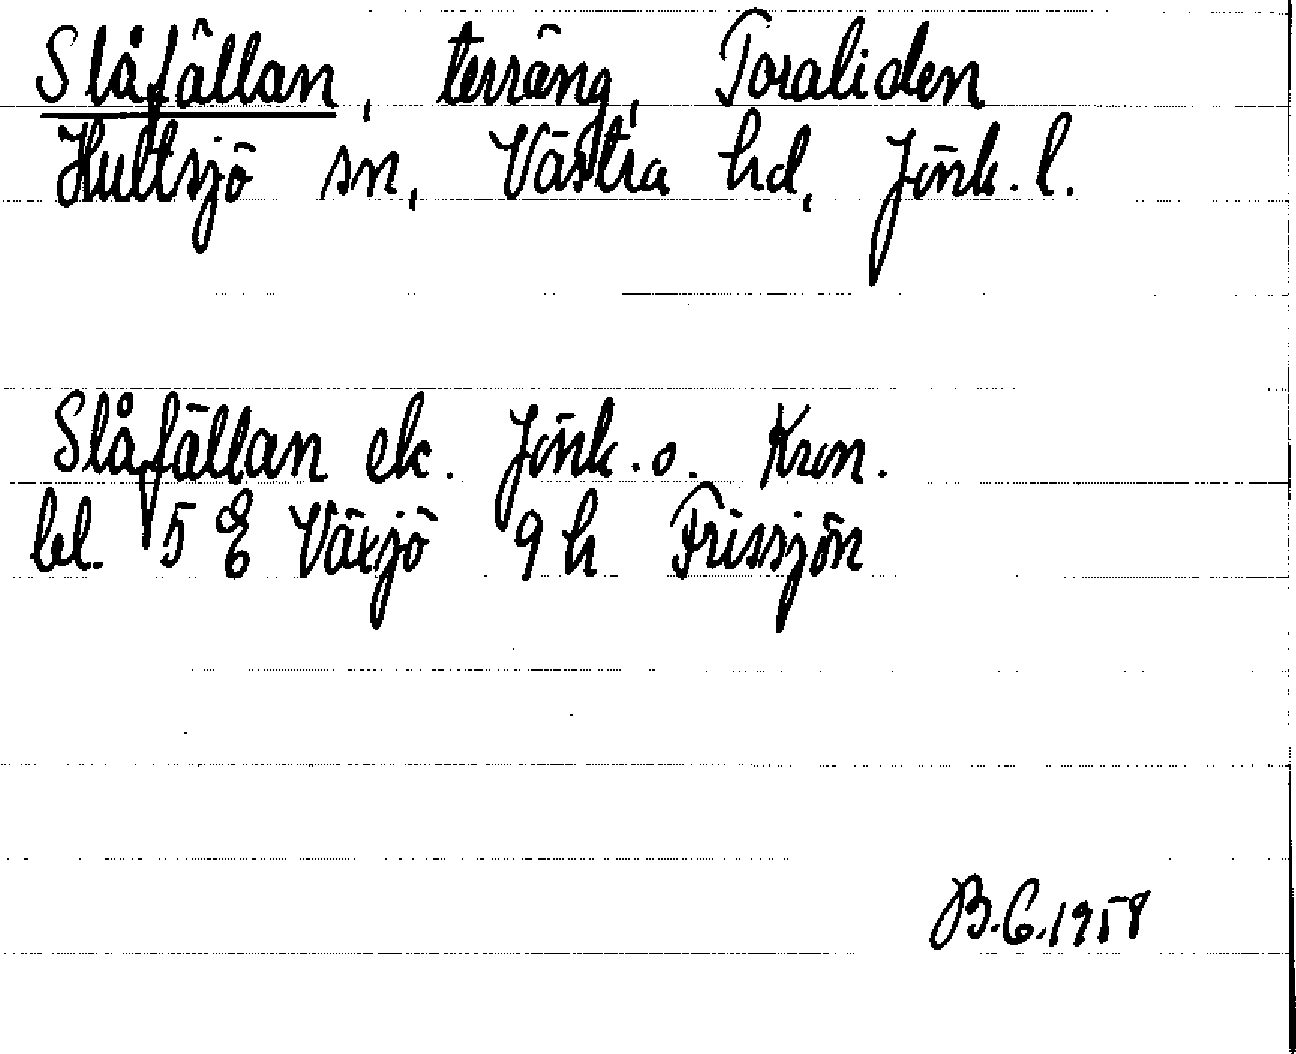 Slåfällan, terräng, Toraliden
Hultsjö sn, Västra hd, Jönk. l.
Slåfällan ek. Jönk. o. Kron.
bl. 5 E Växjö 9 h Frissjön
B.G. 1958